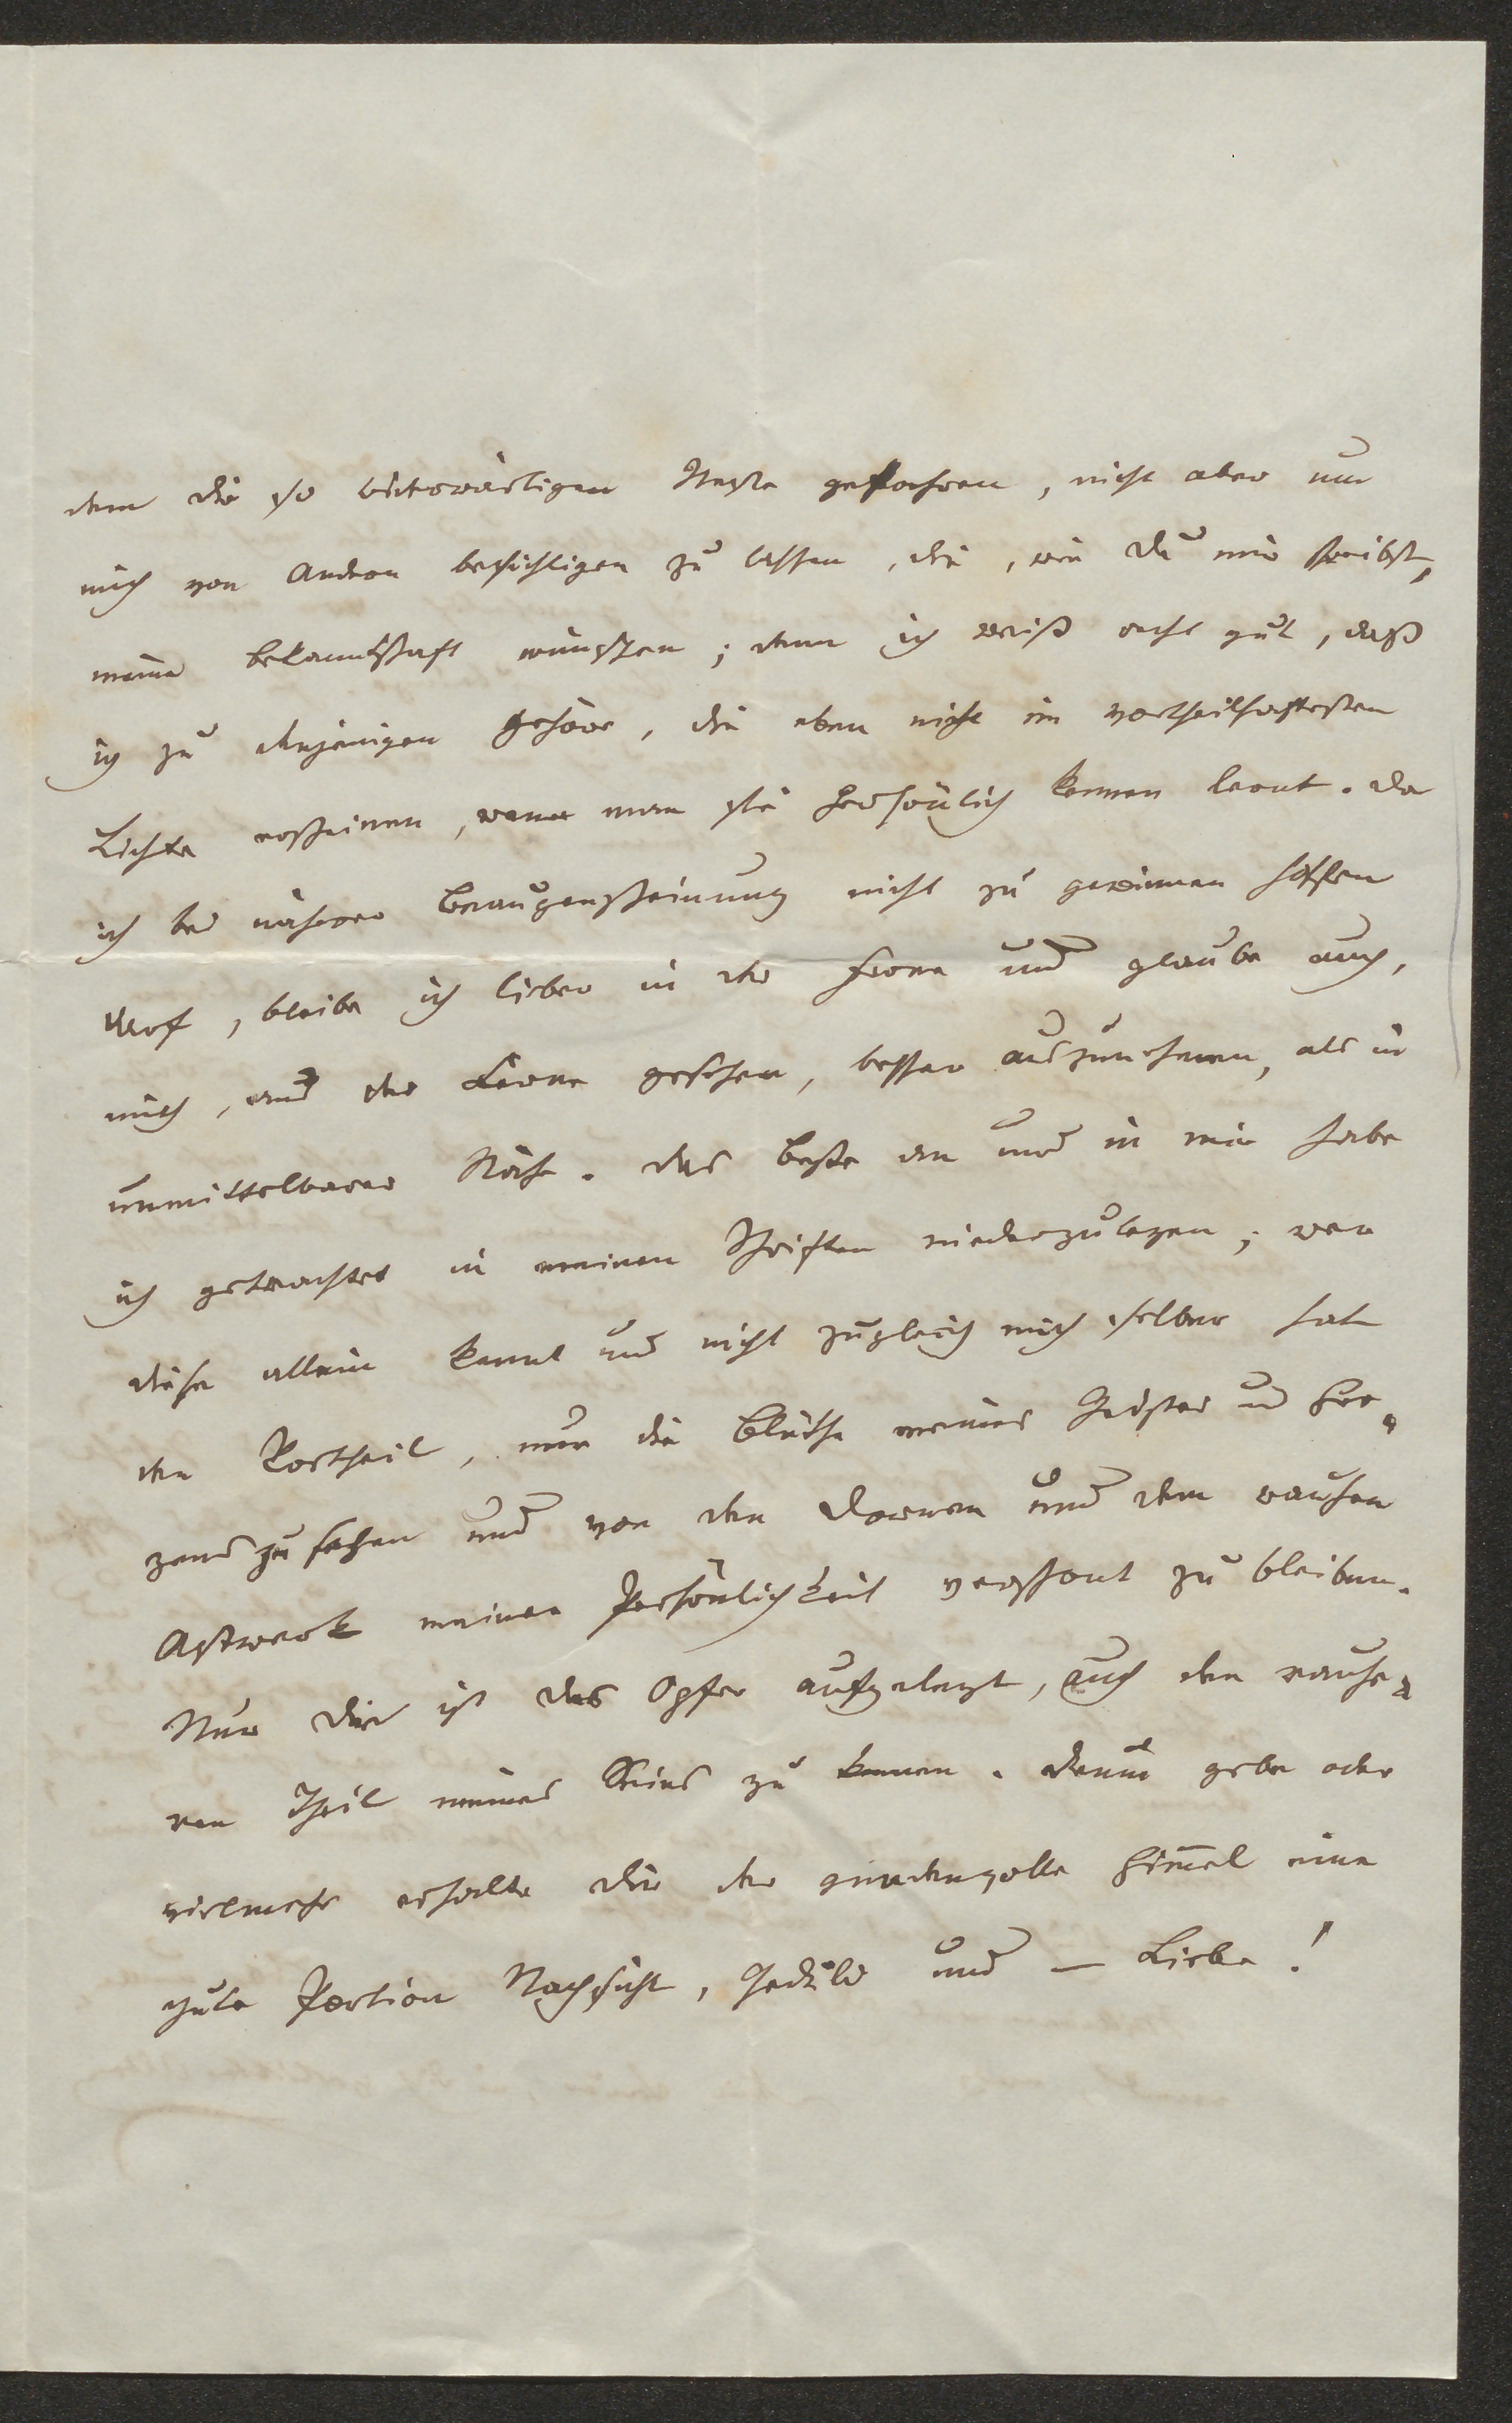 dem die so widerwärtigen Neste gefahren, nicht aber um
mich von Andern besichtigen zu lassen, die, wie Du mir schreibst,
meine Bekanntschaft wünschen; denn ich weiß recht gut, daß
ich zu denjenigen gehöre, die eben nicht im vortheilhaftesten
Lichte erscheinen, wenn man sie persönlich kennen lernt. Da
ich bei näherer Beaugenscheinung nicht zu gewinnen hoffen
darf, bleibe ich lieber in der Ferne und glaube auch,
mich, aus der Ferne gesehen, besser auszunehmen, als in
unmittelbarer Nähe. Das Beste an und in mir habe
ich getrachtet in meinen Schriften niederzulegen; wer
diese allein kennt und nicht zugleich mich selber hat
den Vortheil, nur die Blüthe meines Geistes und Her-
zens zu sehen und von den Dornen und dem rauhen
Astwerk meiner Persönlichkeit verschont zu bleiben.
Nur Dir ist das Opfer aufgelegt, auch den rauhe-
ren Theil meines Seins zu kennen. Darum gebe oder
vielmehr erhalte Dir der gnadenvolle Himmel eine
gute Portion Nachsicht, Geduld und — Liebe!